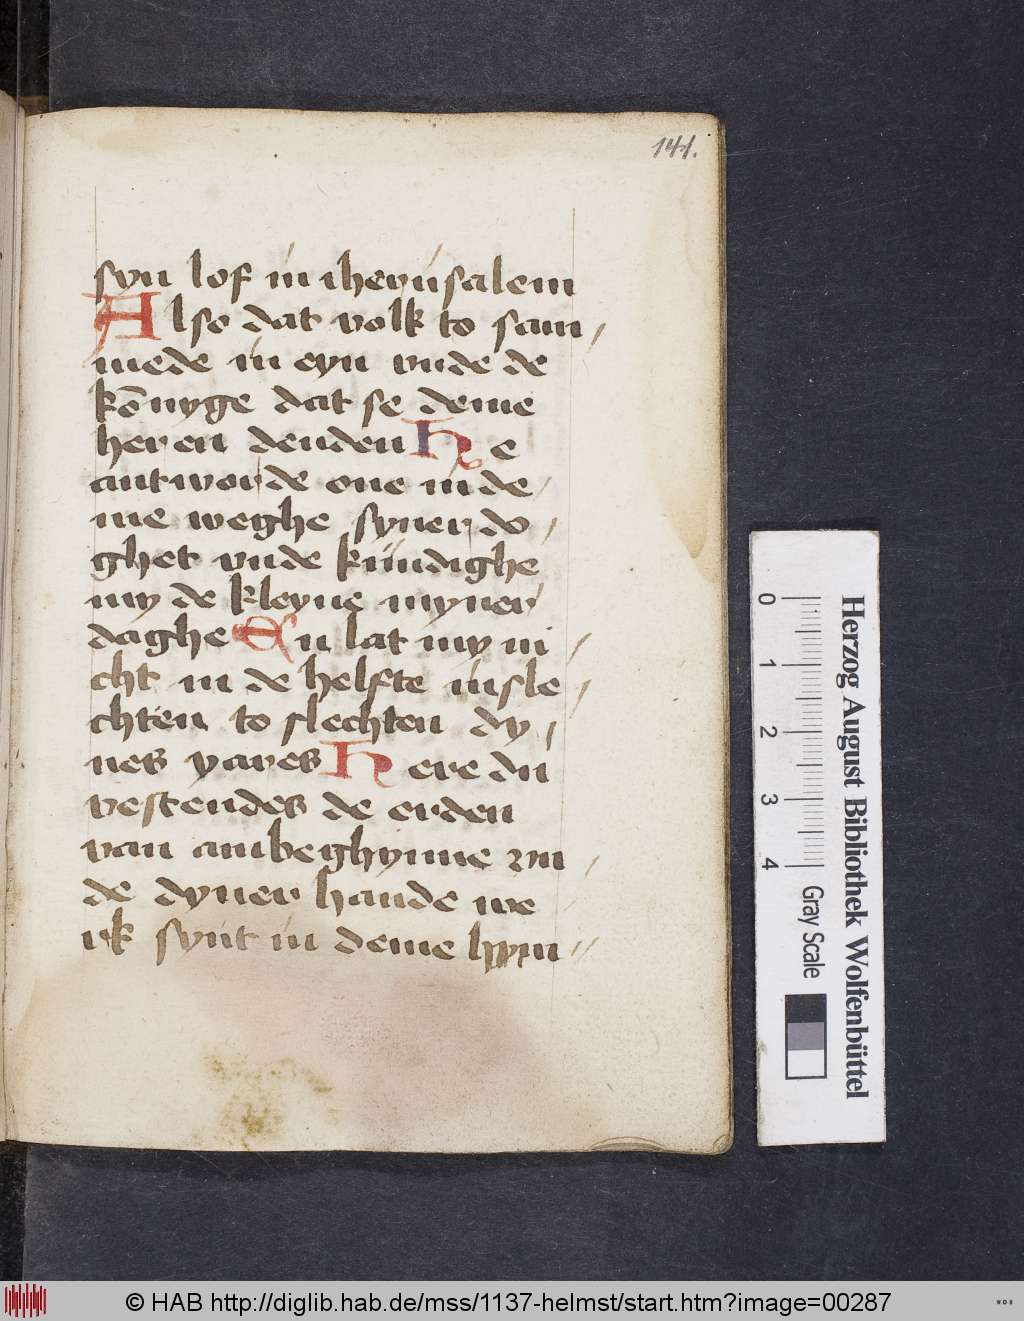 141.
syn lof in iherusalem
Alse dat volk to sam
mede in eyn vnde de
kōnyge dat se deme
heren denden He
antworde one in de
me weghe syner do
ghet vnde kundighe
my de kleyne myner
daghe En lat my ni
cht in de helfte in sle
chten to slechten dy
nes yares Here du
vestendes de erden
van ambeghynne vn
de dyner hande we
rk synt in deme hym
0 1 2 3 4
Herzog August Bibliothek Wolfenbüttel
Gray Scale
© HAB http://diglib.hab.de/mss/1137-helmst/start.htm?image=00287